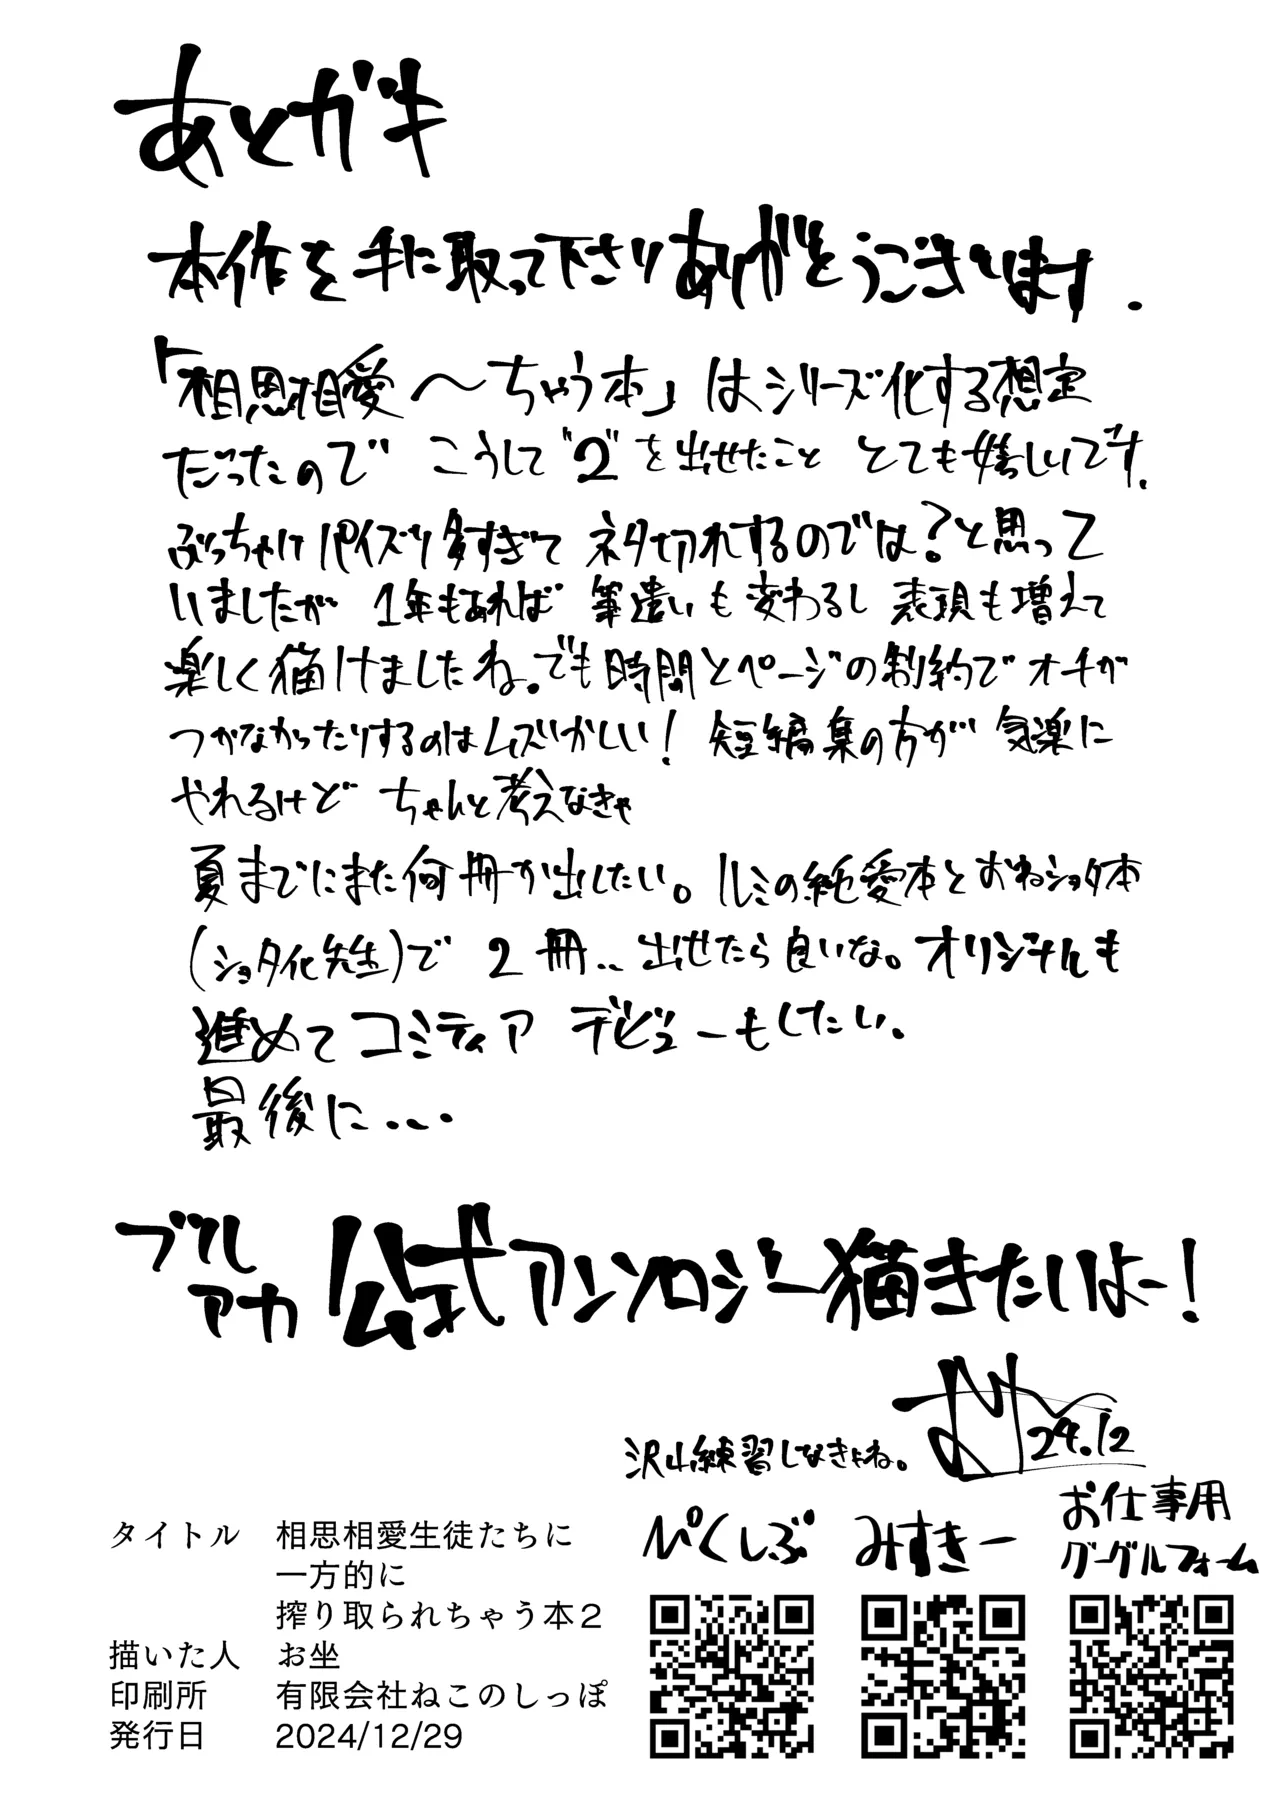 あとがキ
本作を手に取って下さりありがとうございます.
「相思相愛〜ちゃう本」はシリーズ化する想定
だったので こうして"2"を出せたこと とても嬉しいです.
ぶっちゃけパイズリ多すぎて ネタ切れするのでは?と思って
いましたが 1年もあれば 筆遣いも変わるし 表現も増えて
楽しく描けましたね。でも時間とページの制約でオチが
つかなかったりするのはムズかしい! 短編集の方が 気楽に
やれるけど ちゃんと考えなきゃ
夏までにまた何冊か出したい。ルミの純愛本とおねショタ本
(ショタ化先生)で 2冊.. 出せたら良いな。オリジナルも
進めてコミティア デビューもしたい。
最後に...
ブルアカ 公式アンソロジー描きたいよー!
24.12
沢山練習しなきょね。
ぴくしぶ みすきー お仕事用
グーグルフォーム
タイトル 相思相愛生徒たちに
一方的に
搾り取られちゃう本2
描いた人 お坐
印刷所 有限会社ねこのしっぽ
発行日 2024/12/29